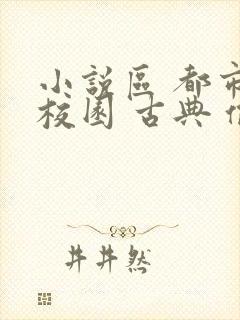 小說區 都市
校園 古典
井井然